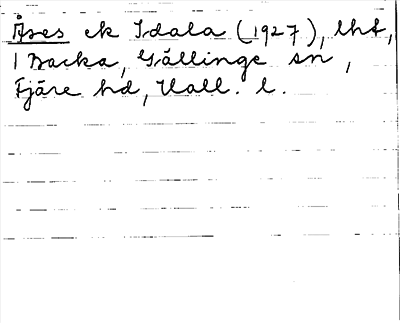 Åses ek Idala (1927), lht,
1 Backa, Gällinge sn,
Fjäre hd, Hall. l.